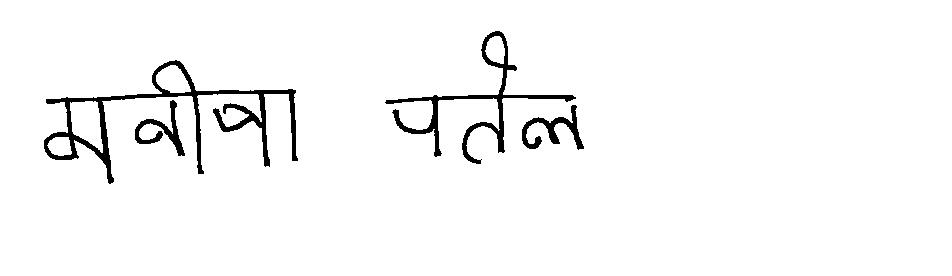 मनीषा पतेल